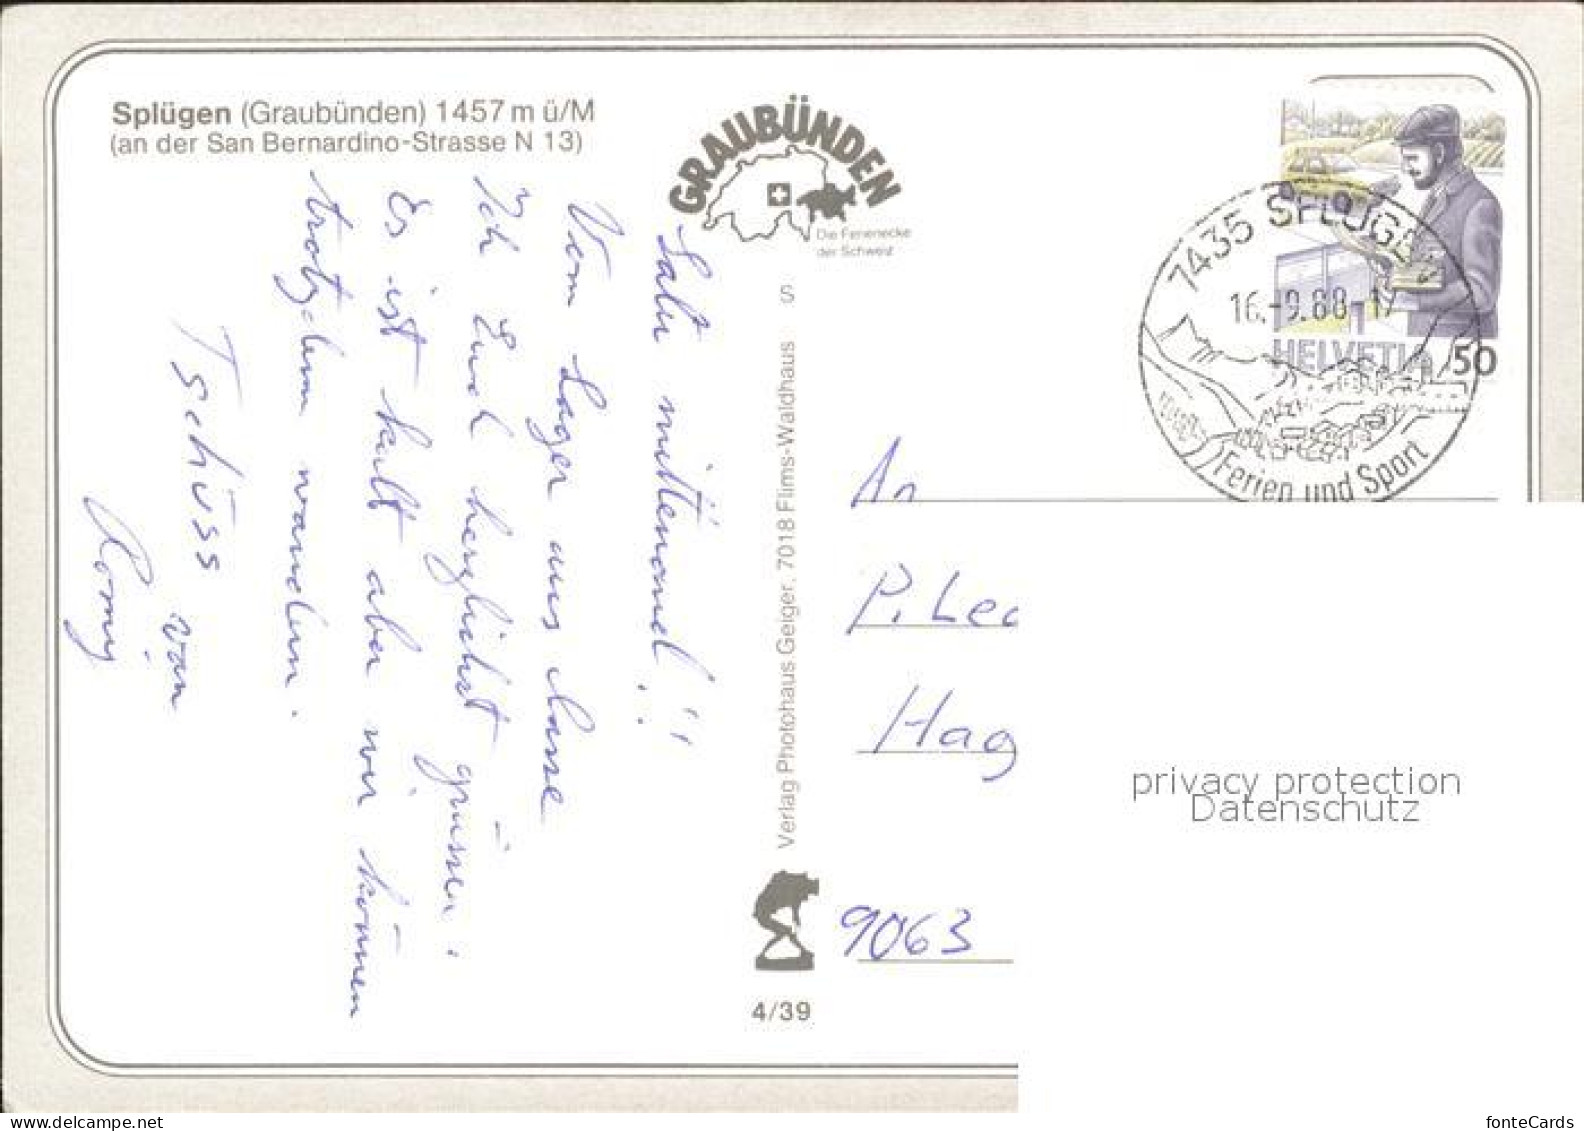 Splügen (Graubünden) 1457 m ü/M
(an der San Bernardino-Strasse N 13)
Salü mittenand!!
Vom Lager aus
Ich Euch herzlichst grüssen.
Es ist kalt aber wir können
trotzdem wandern.
Tschüss
von
Romy
GRAUBÜNDEN
Die Ferienecke
der Schweiz
S
Verlag Photohaus Geiger, 7018 Flims-Waldhaus
4/39
7435 SPLÜGEN
16.-9.88-17
Ferien und Sport
HELVETIA 50
An
P. Leo
Hag
9063
privacy protection
Datenschutz
www.oldthing.net
fonteCards